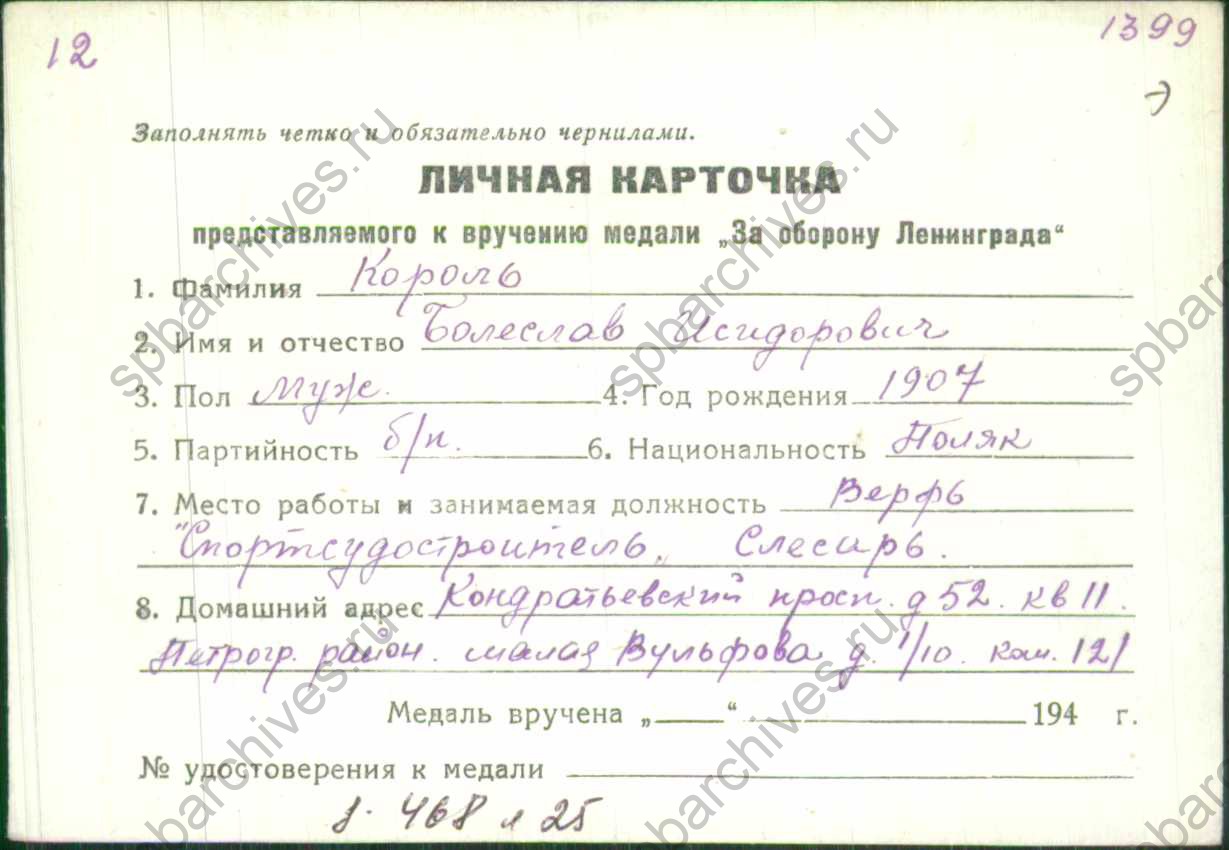 12
1399
Заполнять четко и обязательно чернилами.
ЛИЧНАЯ КАРТОЧКА
представляемого к вручению медали „За оборону Ленинграда“
1. Фамилия Король
2. Имя и отчество Болеслав Исидорович
3. Пол муж. 4. Год рождения 1907
5. Партийность б/п. 6. Национальность Поляк
7. Место работы и занимаемая должность Верфь
"Спортсудостроитель" Слесарь.
8. Домашний адрес Кондратьевский просп. д 52. кв 11.
Петрогр. район. малая Вульфова д. 1/10. ком. 121
Медаль вручена „ “ 194 г.
№ удостоверения к медали
д. 468 л 25
spbarchives.ru
spbarchives.ru
spbarchives.ru
spbarchives.ru